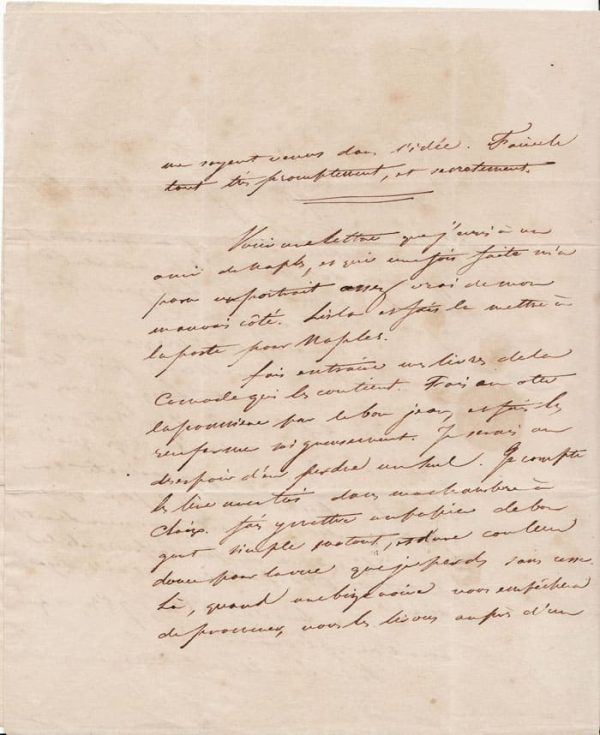 ne soyent venus dans l'idée. Fais le
tout très promptement, et secretement.
Voici une lettre que j'ecris à un
ami de Naples, et qui une fois faite m'a
paru un portrait assez vrai de mon
mauvais côté. Lis la et fais la mettre à
la poste pour Naples.
fais entraire mes livres de la
Commode qui les contient. Fais en oter
la poussiere par le bon jean, et fais les
renfermer soigneusement. Je serais au
desespoir d'en perdre un seul. Je compte
les lire avec toi dans ma chambre à
Claix. fais y mettre un papier de bon
gout simple surtout, et d'une couleur
douce pour la vue que je perds sans cesse.
Là, quand une bize noire nous empêchera
de promener, nous les lirons auprès d'un